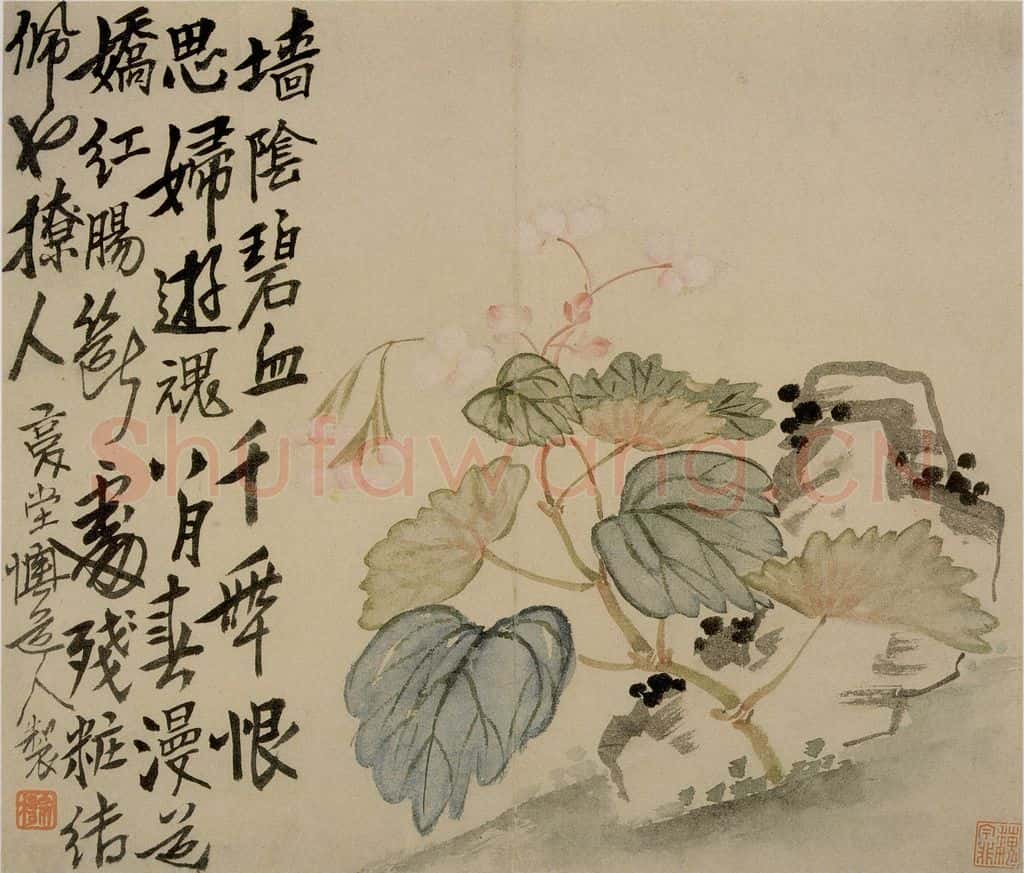 墙陰碧血千年恨
思婦遊魂八月春漫道
嬌紅腸斷處殘粧
佩也撩人
堂道人製
Shufawang.CN